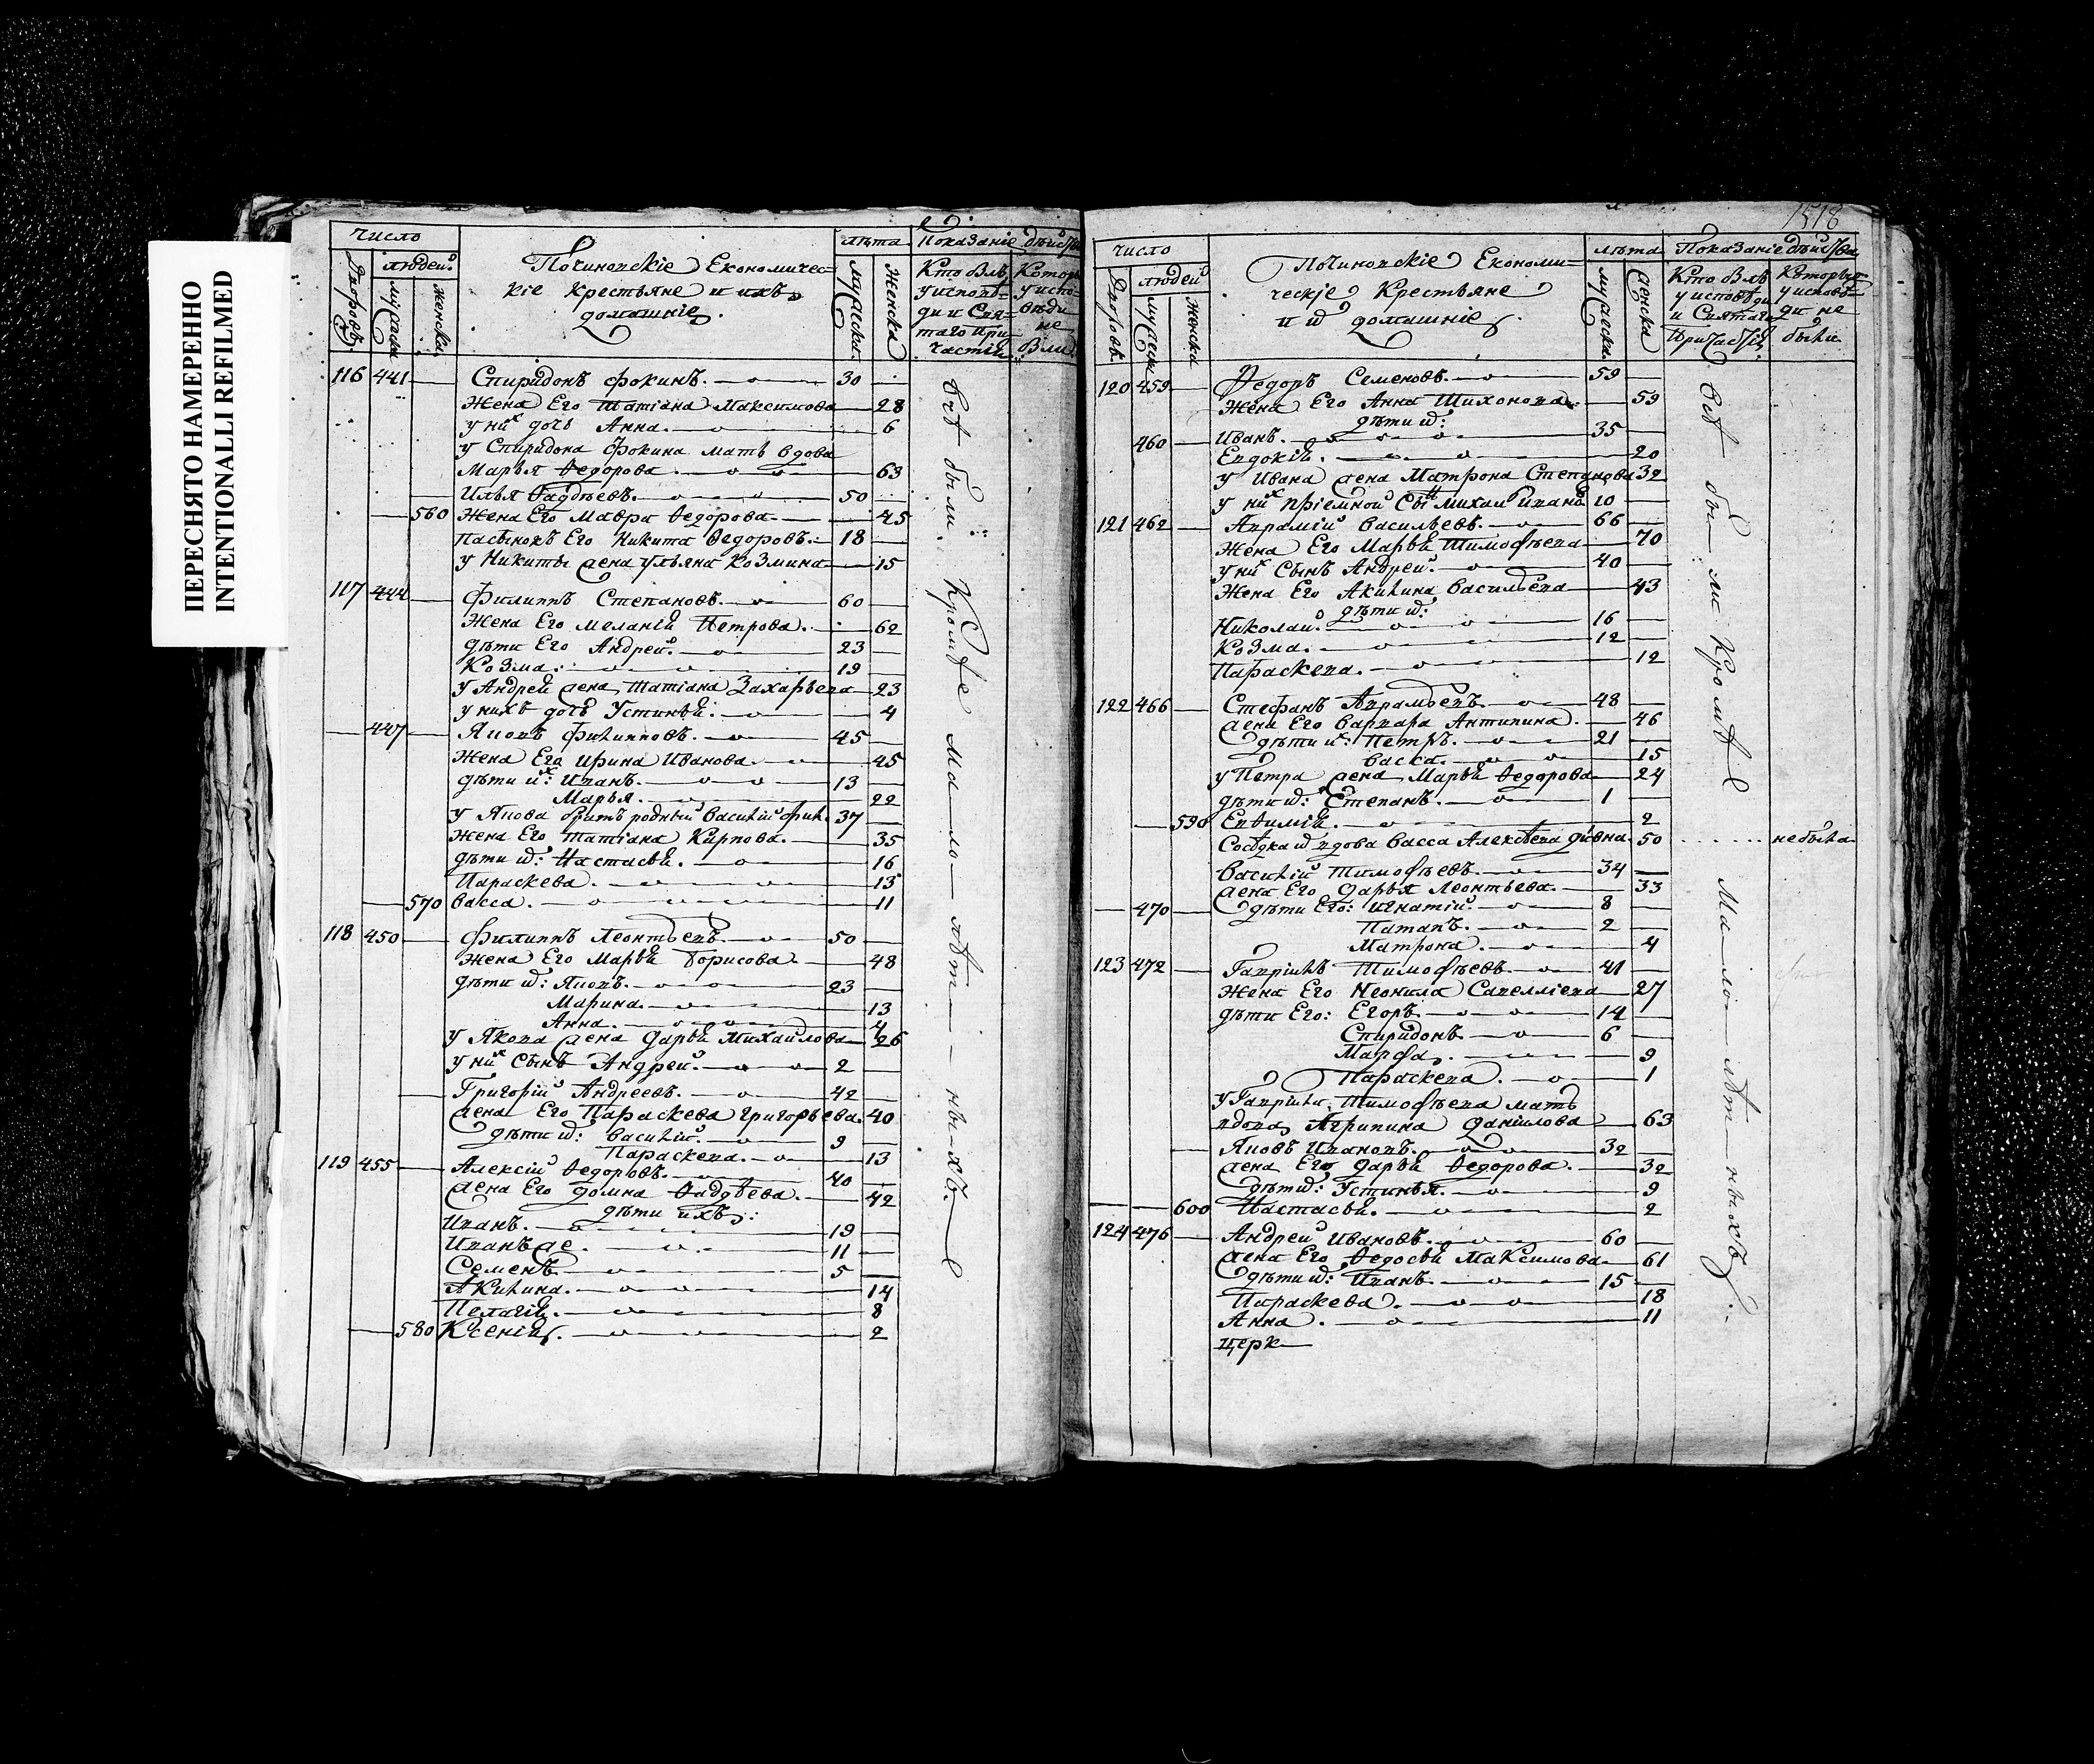 ПЕРЕСНЯТО НАМЕРЕННО
INTENTIONALLI REFILMED
число
людей
Дворовъ
мужеска
женска
Починовскіе Економичес=
кіе Крестьяне и ихъ
домашніе.
лѣта
мужеска
женска
Показаніе дѣйств
Кто былъ
у исповѣ=
ди и Свя=
таго при=
частія
Которы
у испо=
вѣди
не
были
116 441 Спиридонъ Фокинъ. 30
Жена Его Татіана Максимова 28
у них дочь Анна. 6
у Спиридона Фокина мать вдова
Марья Ѳедорова 63
Илья Ѳадѣевъ. 50
560 Жена Его Мавра Ѳедорова. 45
пасынокъ Его Никита Ѳедоровъ. 18
у Никиты жена Ульяна Козмина 15
117 444 Филиппъ Степановъ. 60
Жена Его Меланія Петрова. 62
дѣти Его Андрей. 23
Козма. 19
у Андрея жена Татіана Захарьева 23
у нихъ дочь Устинья. 4
447 Яковъ Филипповъ. 45
Жена Его Ирина Иванова. 45
дѣти их: Иванъ. 13
Марья. 22
у Якова братъ родный Василій Фил. 37
Жена Его Татіана Карпова. 35
дѣти их: Настасья. 16
Параскева. 13
570 Васса. 11
118 450 Филиппъ Леонтьевъ. 50
Жена Его Марья Борисова. 48
дѣти их: Яковъ. 23
Марина. 13
Анна. 4
у Якова жена Дарья Михайлова 26
у них Сынъ Андрей. 2
Григорій Андреевъ. 42
жена Его Параскева Григорьева. 40
дѣти их: Василій. 9
Параскева. 13
119 455 Алексій Ѳедоровъ. 40
жена Его Домна Ѳадѣева. 42
дѣти ихъ:
Иванъ. 19
Иванъ же. 11
Семенъ. 5
Акилина. 14
Пелагія. 8
580 Ксенія. 2
всѣ были. Кромѣ ма-ло-лѣт-ны-хъ.
1518
число
людей
Дворовъ
мужеска
женска
Починовскіе Економи=
ческіе Крестьяне
и их домашніе.
лѣта
мужеска
женска
Показаніе дѣйства
Кто былъ
у исповѣди
и Святаго
Причастія
Которые
у исповѣ=
ди не
были
120 459 Ѳедоръ Семеновъ. 59
Жена Его Анна Тихонова. 59
дѣти их:
460 Иванъ. 35
Евдокія. 20
у Ивана жена Матрона Степанова 32
у них пріемной Сын Михаил Иванов 10
121 462 Аврамій Васильевъ. 66
Жена Его Марья Тимофѣева 70
у них Сынъ Андрей. 40
Жена Его Акилина Васильева 43
дѣти их:
Николай. 16
Козма. 12
Параскева. 12
122 466 Стефанъ Аврамьевъ. 48
жена Его Варвара Антипина. 46
дѣти их: Петръ. 21
Васса. 15
у Петра жена Марья Ѳедорова 24
дѣти их: Степанъ. 1
590 Евѳимія. 2
Сосѣдка их вдова Васса Алексѣева 50 не была
Василій Тимофѣевъ. 34
жена Его Дарья Леонтьева. 33
470 дѣти Его: Игнатій. 8
Патапъ. 2
Матрона. 4
123 472 Гаврилъ Тимофѣевъ. 41
Жена Его Неонила Савелліева 27
дѣти Его: Егоръ. 14
Спиридонъ 6
Марфа. 9
Параскева. 1
у Гаврила Тимофѣева мать
вдова Агрипина Данилова 63
Яковъ Ивановъ. 32
жена Его Дарья Ѳедорова. 32
дѣти их: Устинья. 9
600 Настасья. 2
124 476 Андрей Ивановъ. 60
жена Его Ѳедосья Максимова 61
дѣти их: Иванъ. 15
Параскева. 18
Анна. 11
церк
всѣ бы-ли Кромѣ Ма-ло-лѣт-ныхъ.